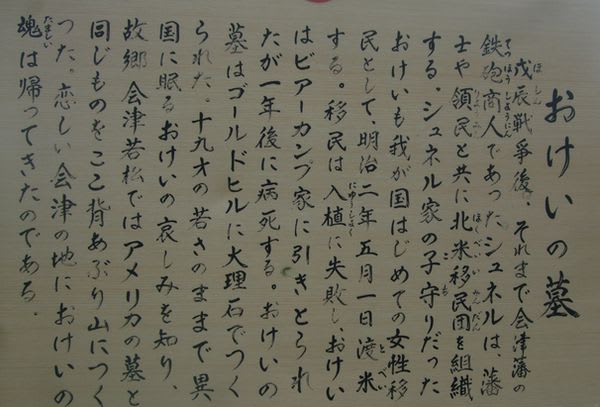 おけいの墓
戊辰戦争後、それまで会津藩の
鉄砲商人であったシュネルは、藩
士や領民と共に北米移民団を組織
する。シュネル家の子守りだった
おけいも我が国はじめての女性移
民として、明治二年五月一日渡米
する。移民は入植に失敗し、おけい
はビアーカンプ家に引きとられ
たが一年後に病死する。おけいの
墓はゴールドヒルに大理石でつく
られた。十九才の若さのままで異
国に眠るおけいの哀しみを知り、
故郷会津若松ではアメリカの墓と
同じものをここ背あぶり山につく
った。恋しい会津の地におけいの
魂は帰ってきたのである。